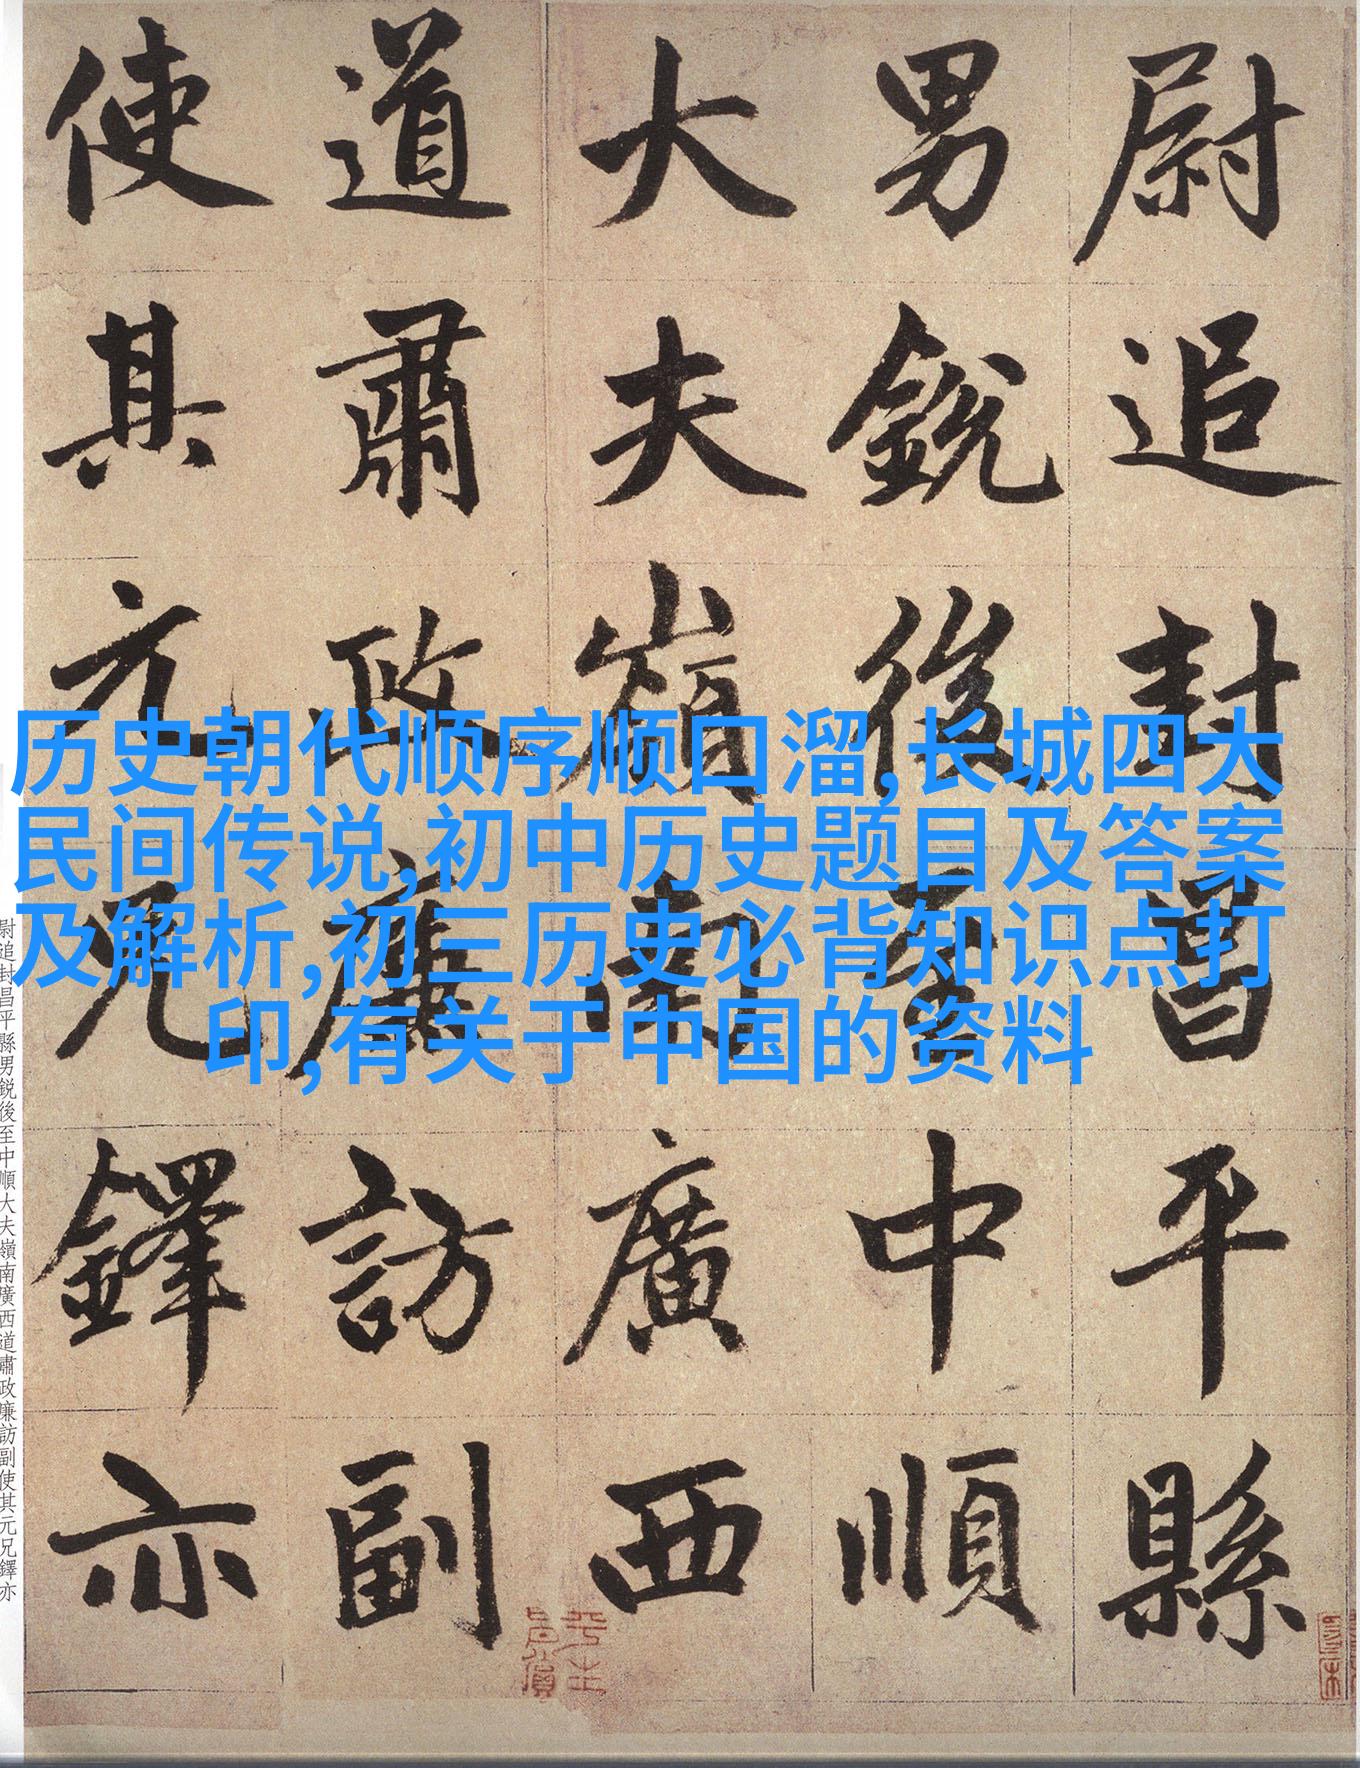 尉追封昌平縣
男銳後至中順
大夫嶺南廣西
道肅政廉訪副
使其元兄鐸亦
历史朝代顺序顺口溜,长城四大
民间传说,初中历史题目及答案
及解析,初三历史必背知识点打
印,有关于中国的资料
尉追封昌平縣男銳後至中順大夫嶺南廣西道肅政廉訪副使其元兄鐸亦